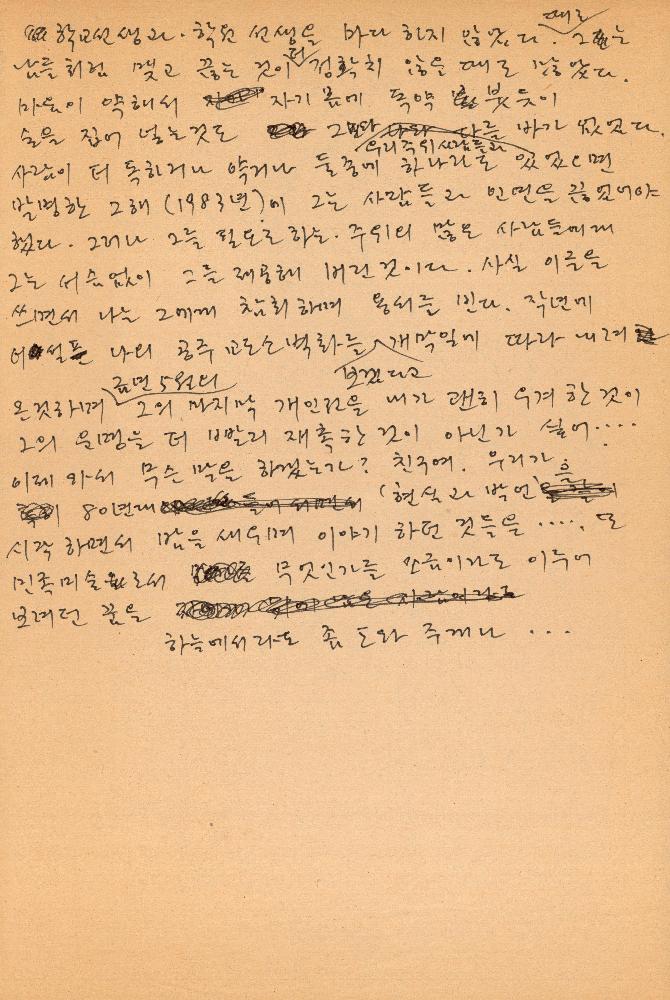 학교선생과. 학원 선생을 마다 하지 않았다. 때로 그는
남들처럼 맺고 끊는 것이 더 정확치 않을 때도 많았다.
마음이 약해서 자기 몸에 독약 붓듯이
술을 집어 넣는것도 우리 주위 사람들과 다를 바가 없었다.
사람이 더 독하거나 약거나 둘중에 하나라도 있었으면
발병한 그해 (1983년)에 그는 사람들과 인연을 끊었어야
했다. 그러나 그를 필요로 하는. 주위의 많은 사람들에게
그는 서슴없이 그를 제공해 버린것이다. 사실 이글을
쓰면서 나는 그에게 참회하며 용서를 빈다. 작년에
나의 공주 교도소벽화를 보겠다고 개막일에 따라 내려
온것하며 금년 5월의 그의 마지막 개인전을 내가 괜히 우겨 한것이
그의 운명을 더 빨리 재촉한 것이 아닌가 싫어....
이제 와서 무슨 말을 하겠는가? 친구여. 우리가
80년대 (현실과 발언)을
시작하면서 밤을 새우며 이야기 하던 것들을 ...., 또
민족미술로서 무엇인가를 조금이라도 이루어
보려던 꿈을
하늘에서라도 좀 도와 주게나 ...